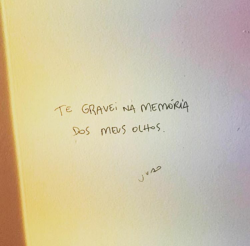 TE GRAVEI NA MEMÓRIA
DOS MEUS OLHOS.